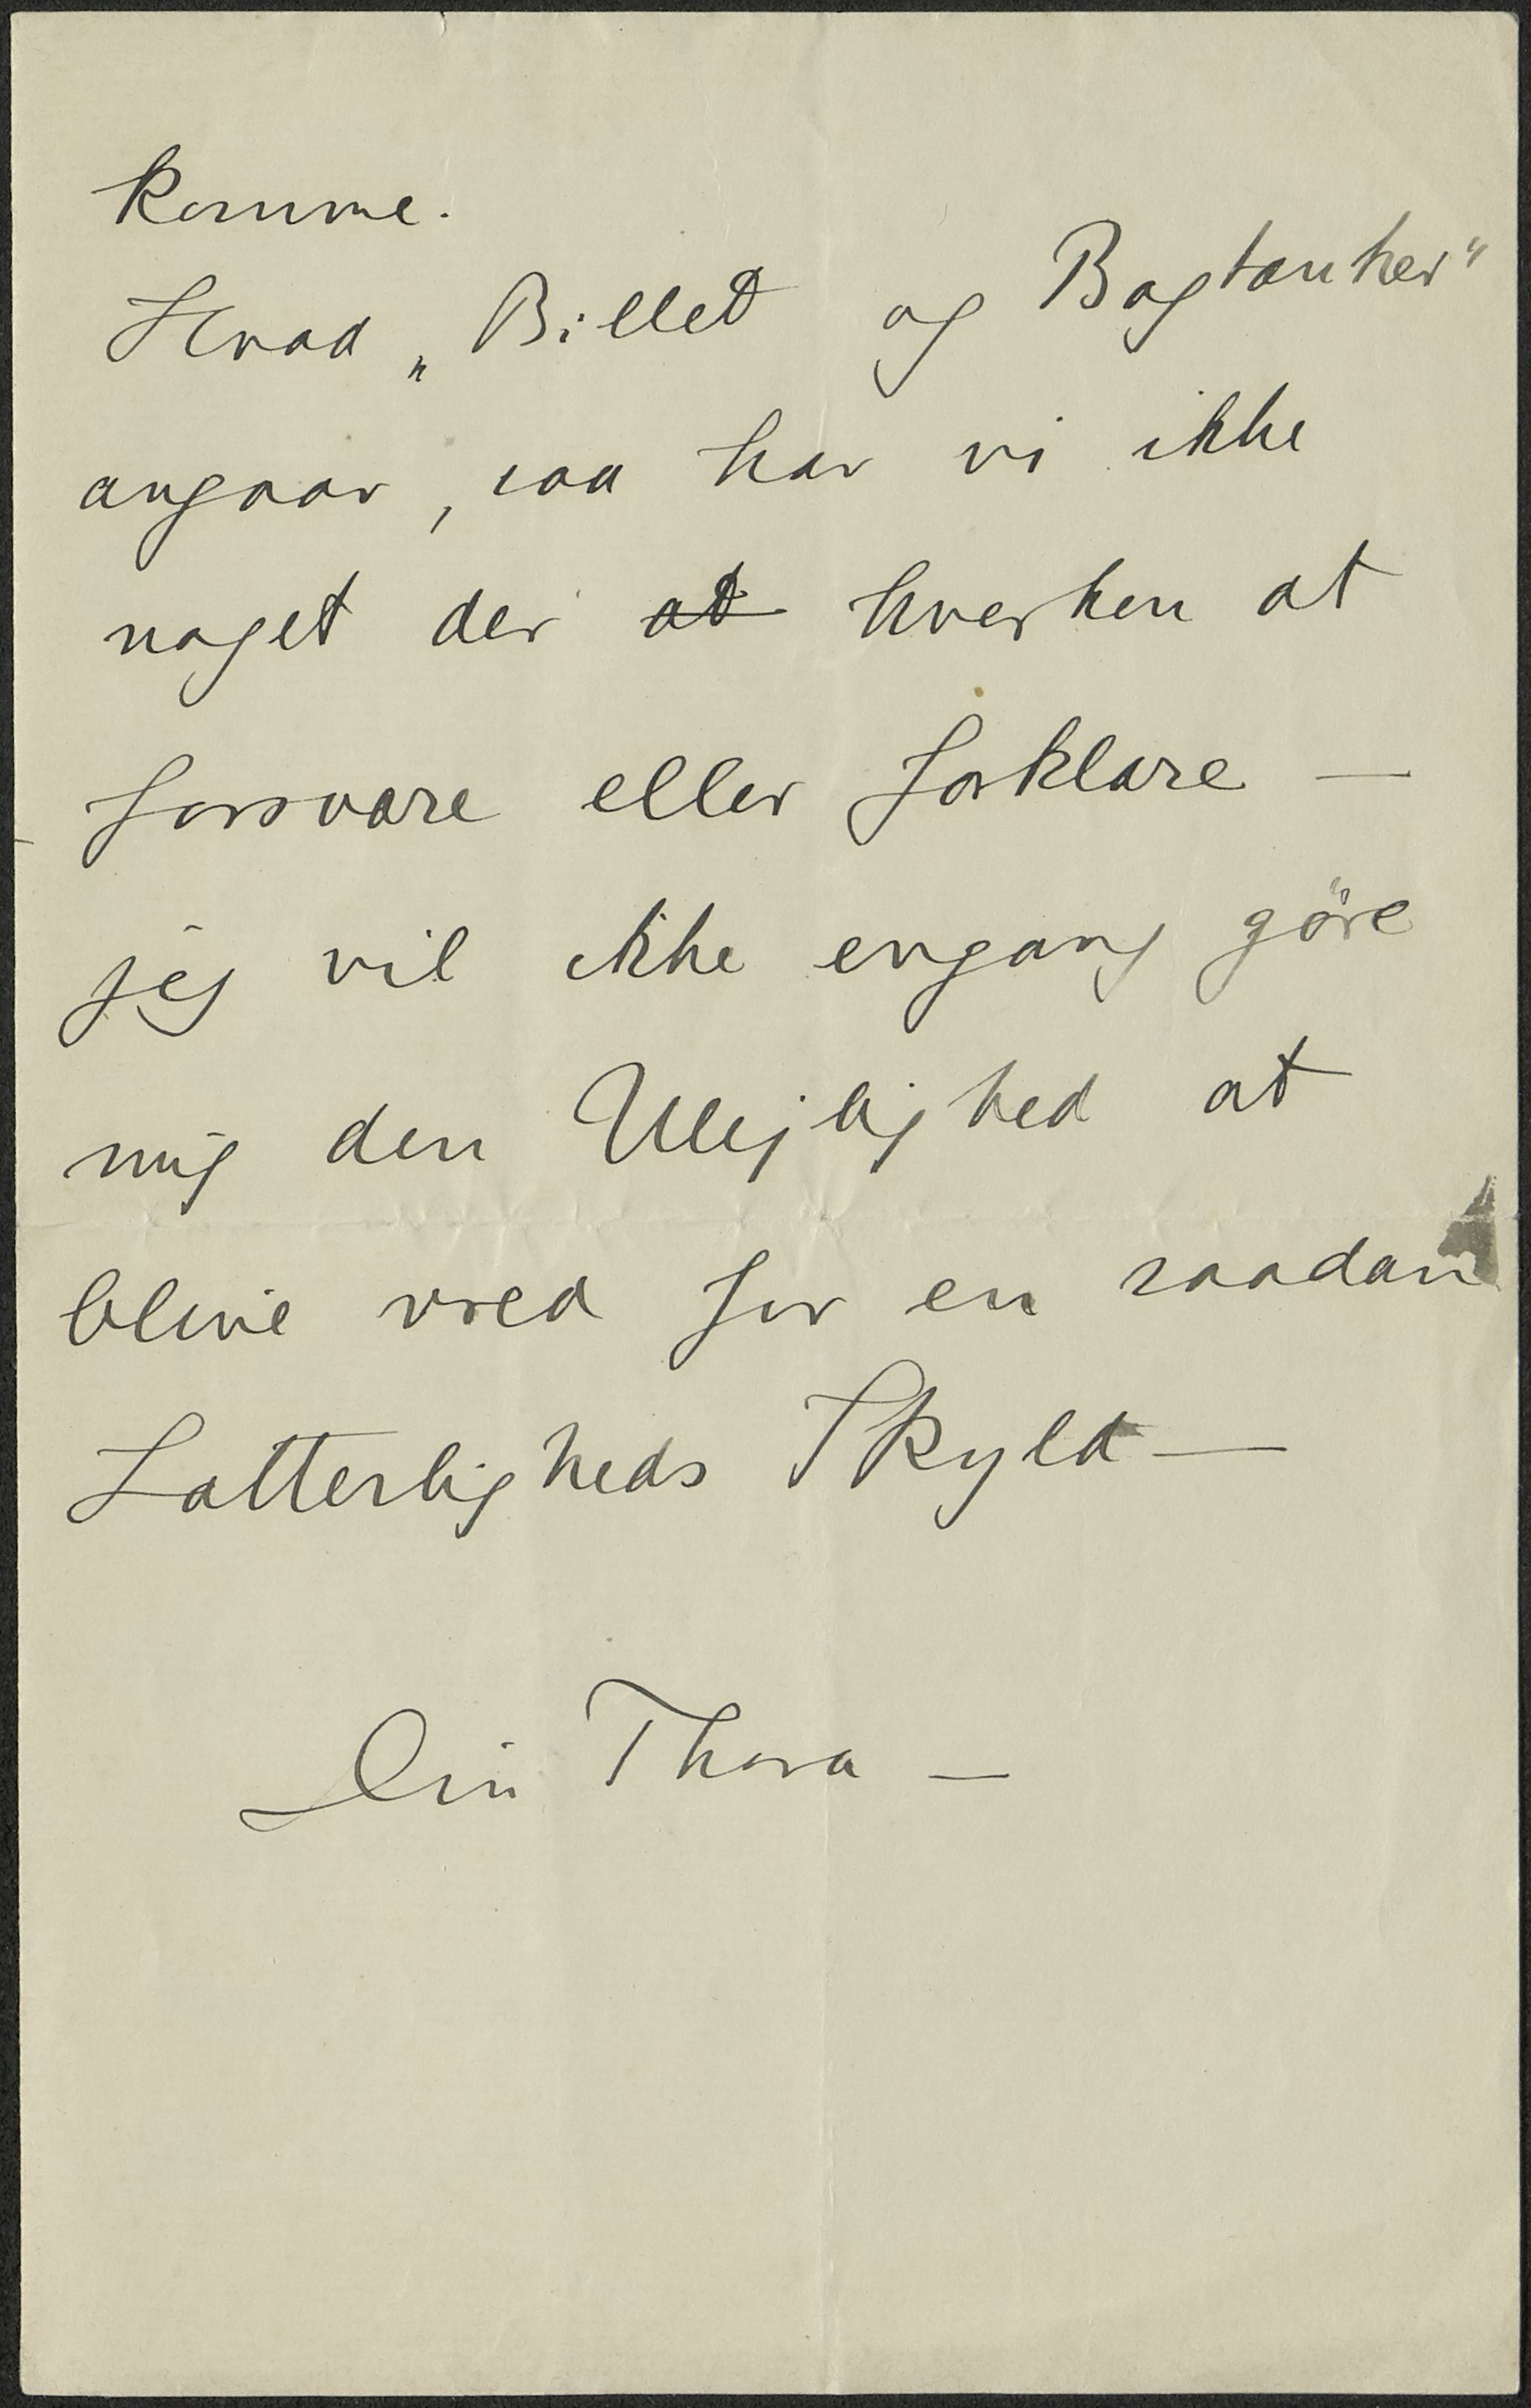 komme.
Hvad „Billet og Bagtanker"
angaar, saa har vi ikke
noget der at hverken at
forsvare eller forklare —
jeg vil ikke engang göre
mig den Ulejlighed at
blive vred for en saadan
Latterligheds Skyld —
Din Thora —